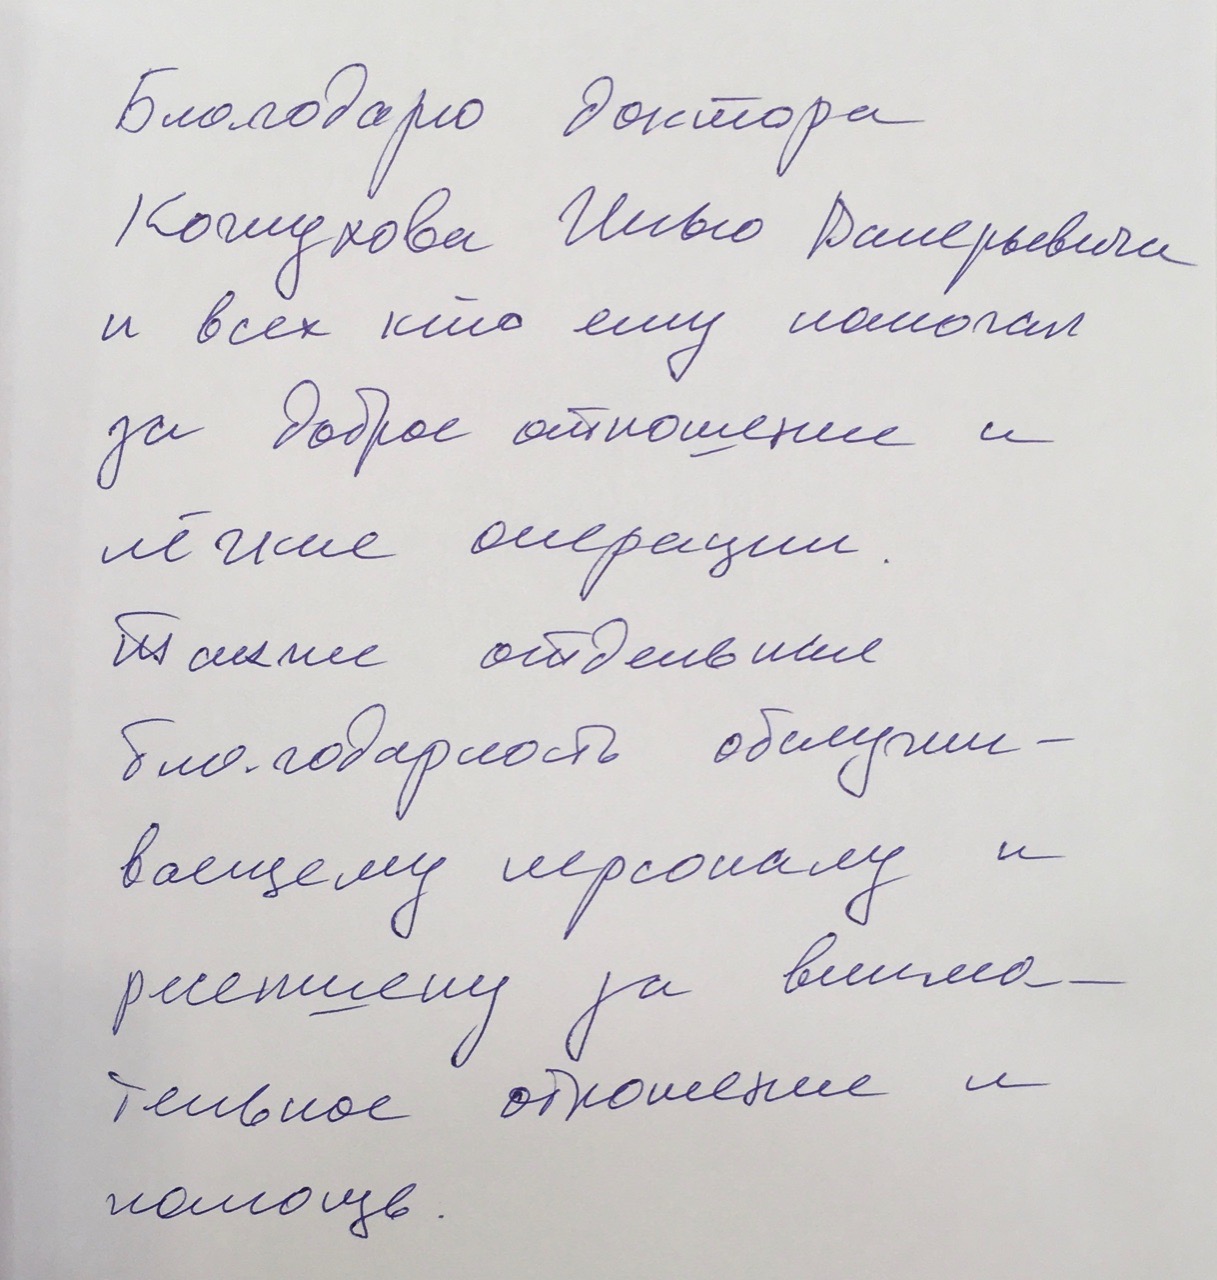 Благодарю доктора
Кожухова Илью Валерьевича
и всех кто ему помогал
за доброе отношение и
лёгкие операции.
Также отдельная
благодарность обслужи-
ваещему персоналу и
ресепшену за внима-
тельное отношение и
помощь.